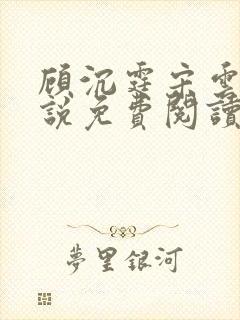 顾沉霆宋雲
説免費閱讀
夢里銀河